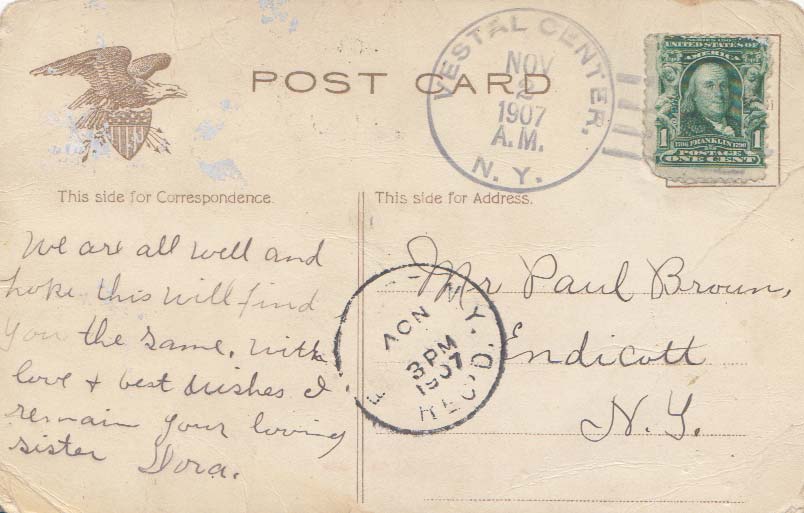 POST CARD
VESTAL CENTER,
NOV
2
1907
A.M.
N. Y.
SERIES 1902
UNITED STATES OF
AMERICA
1 1706 FRANKLIN 1790 1
POSTAGE
ONE CENT
This side for Correspondence.
This side for Address.
We are all well and
hope this will find
you the same. With
love & best wishes I
remain your loving
sister Dora.
N.Y.
NOV
3 PM
1907
REC'D.
Mr Paul Brown,
Endicott
N.Y.